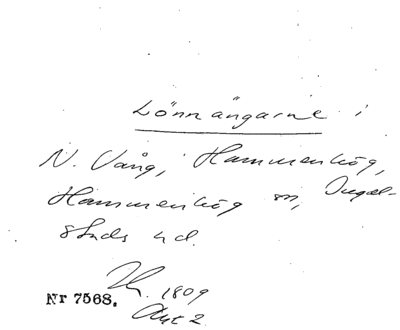 Lönnängarne i
N. Vång, Hammenhög,
Hammenhög sn, Ingel-
stads hd.
Th. 1809
Akt 2
Nr 7568.